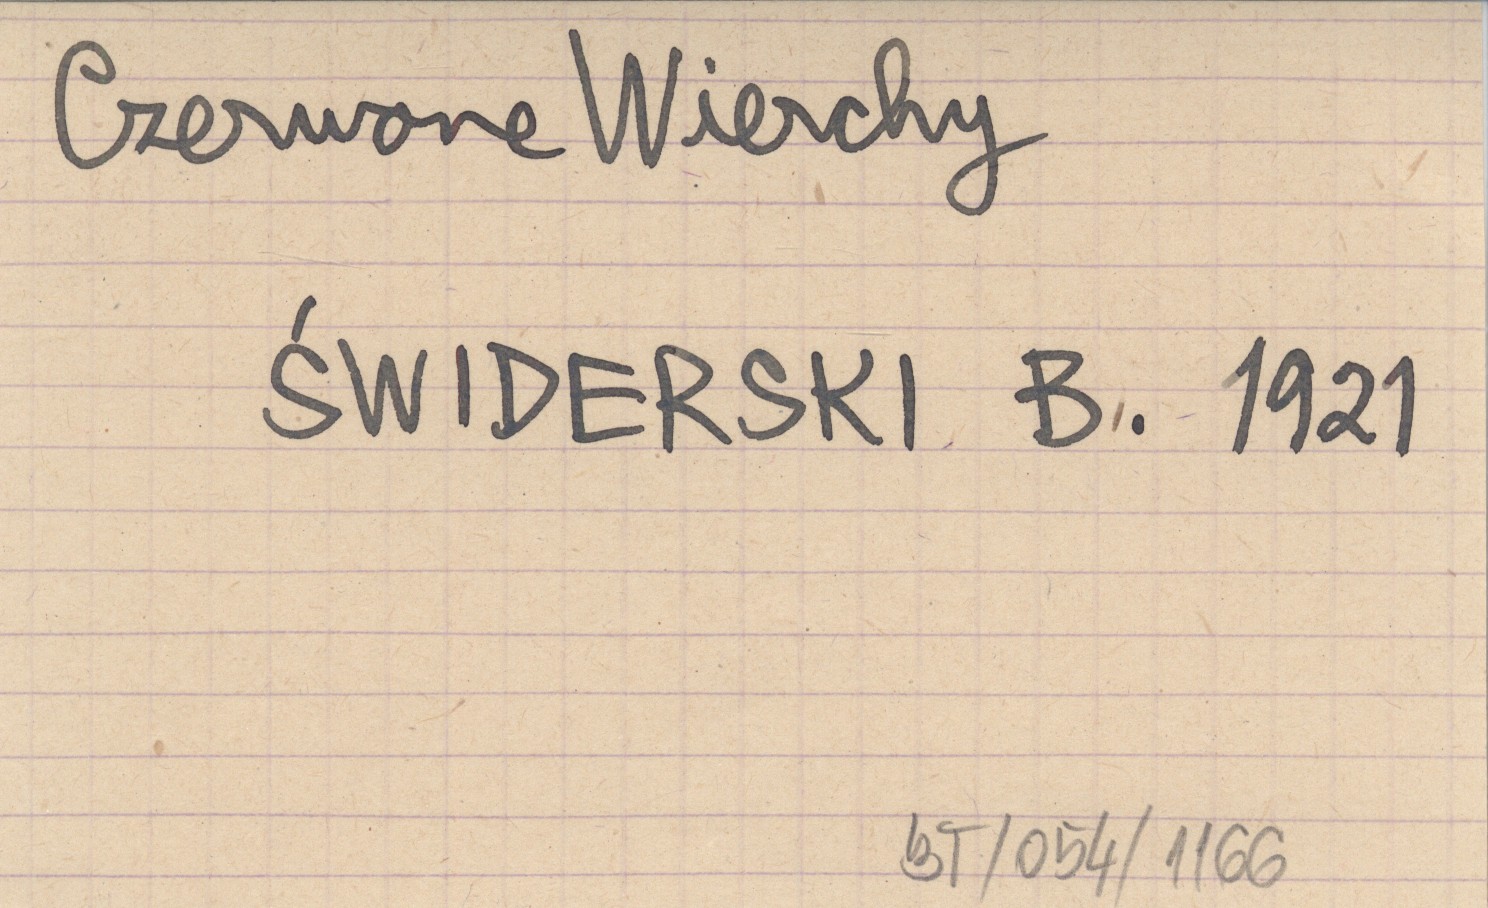 Czerwone Wierchy
ŚWIDERSKI B. 1921
BT/054/1166